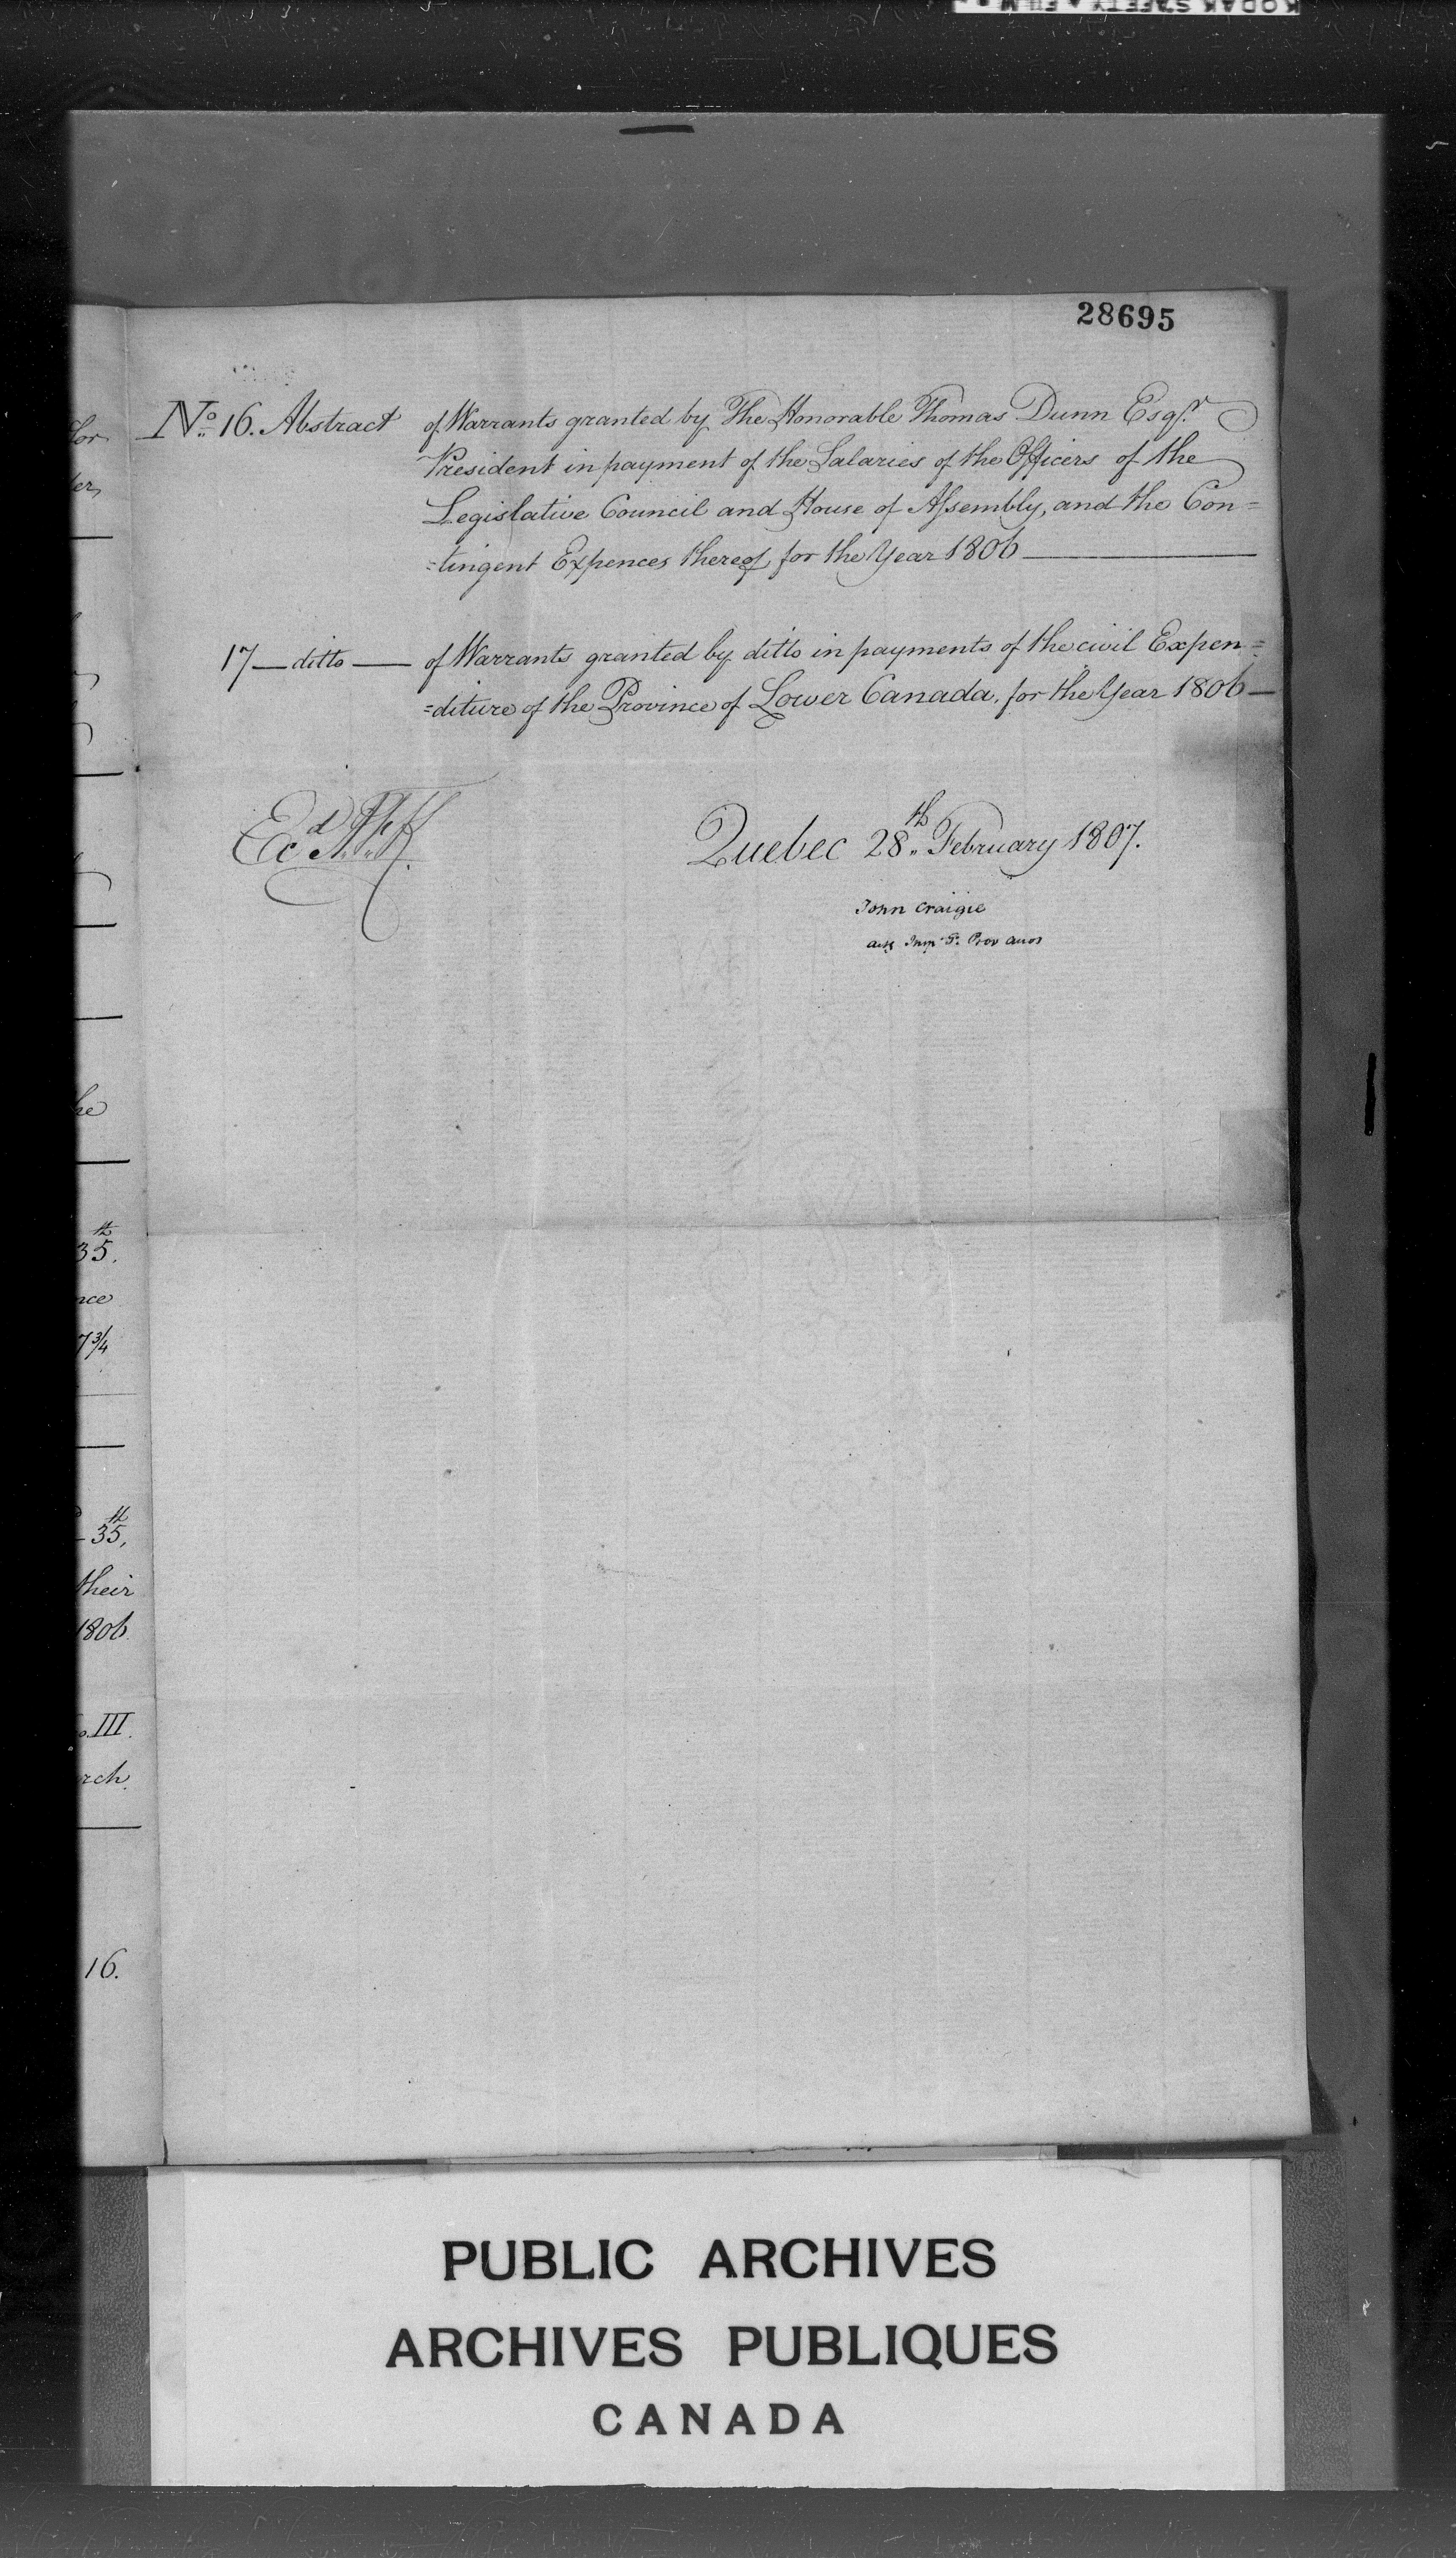 28695
No. 16. Abstract of Warrants granted by The Honorable Thomas Dunn Esqr.
President in payment of the Salaries of the Officers of the
Legislative Council and House of Assembly, and the Con=
=tingent Expences thereof, for the Year 1806
17 — ditto — of Warrants granted by ditto in payments of the civil Expen=
=diture of the Province of Lower Canada, for the Year 1806 —
Quebec 28th February 1807.
John Craigie
Prov
er,
he
35th.
nce
7¾
35th,
their
1806
III.
rch.
16.
PUBLIC ARCHIVES
ARCHIVES PUBLIQUES
CANADA
KODAK SAFETY FILM